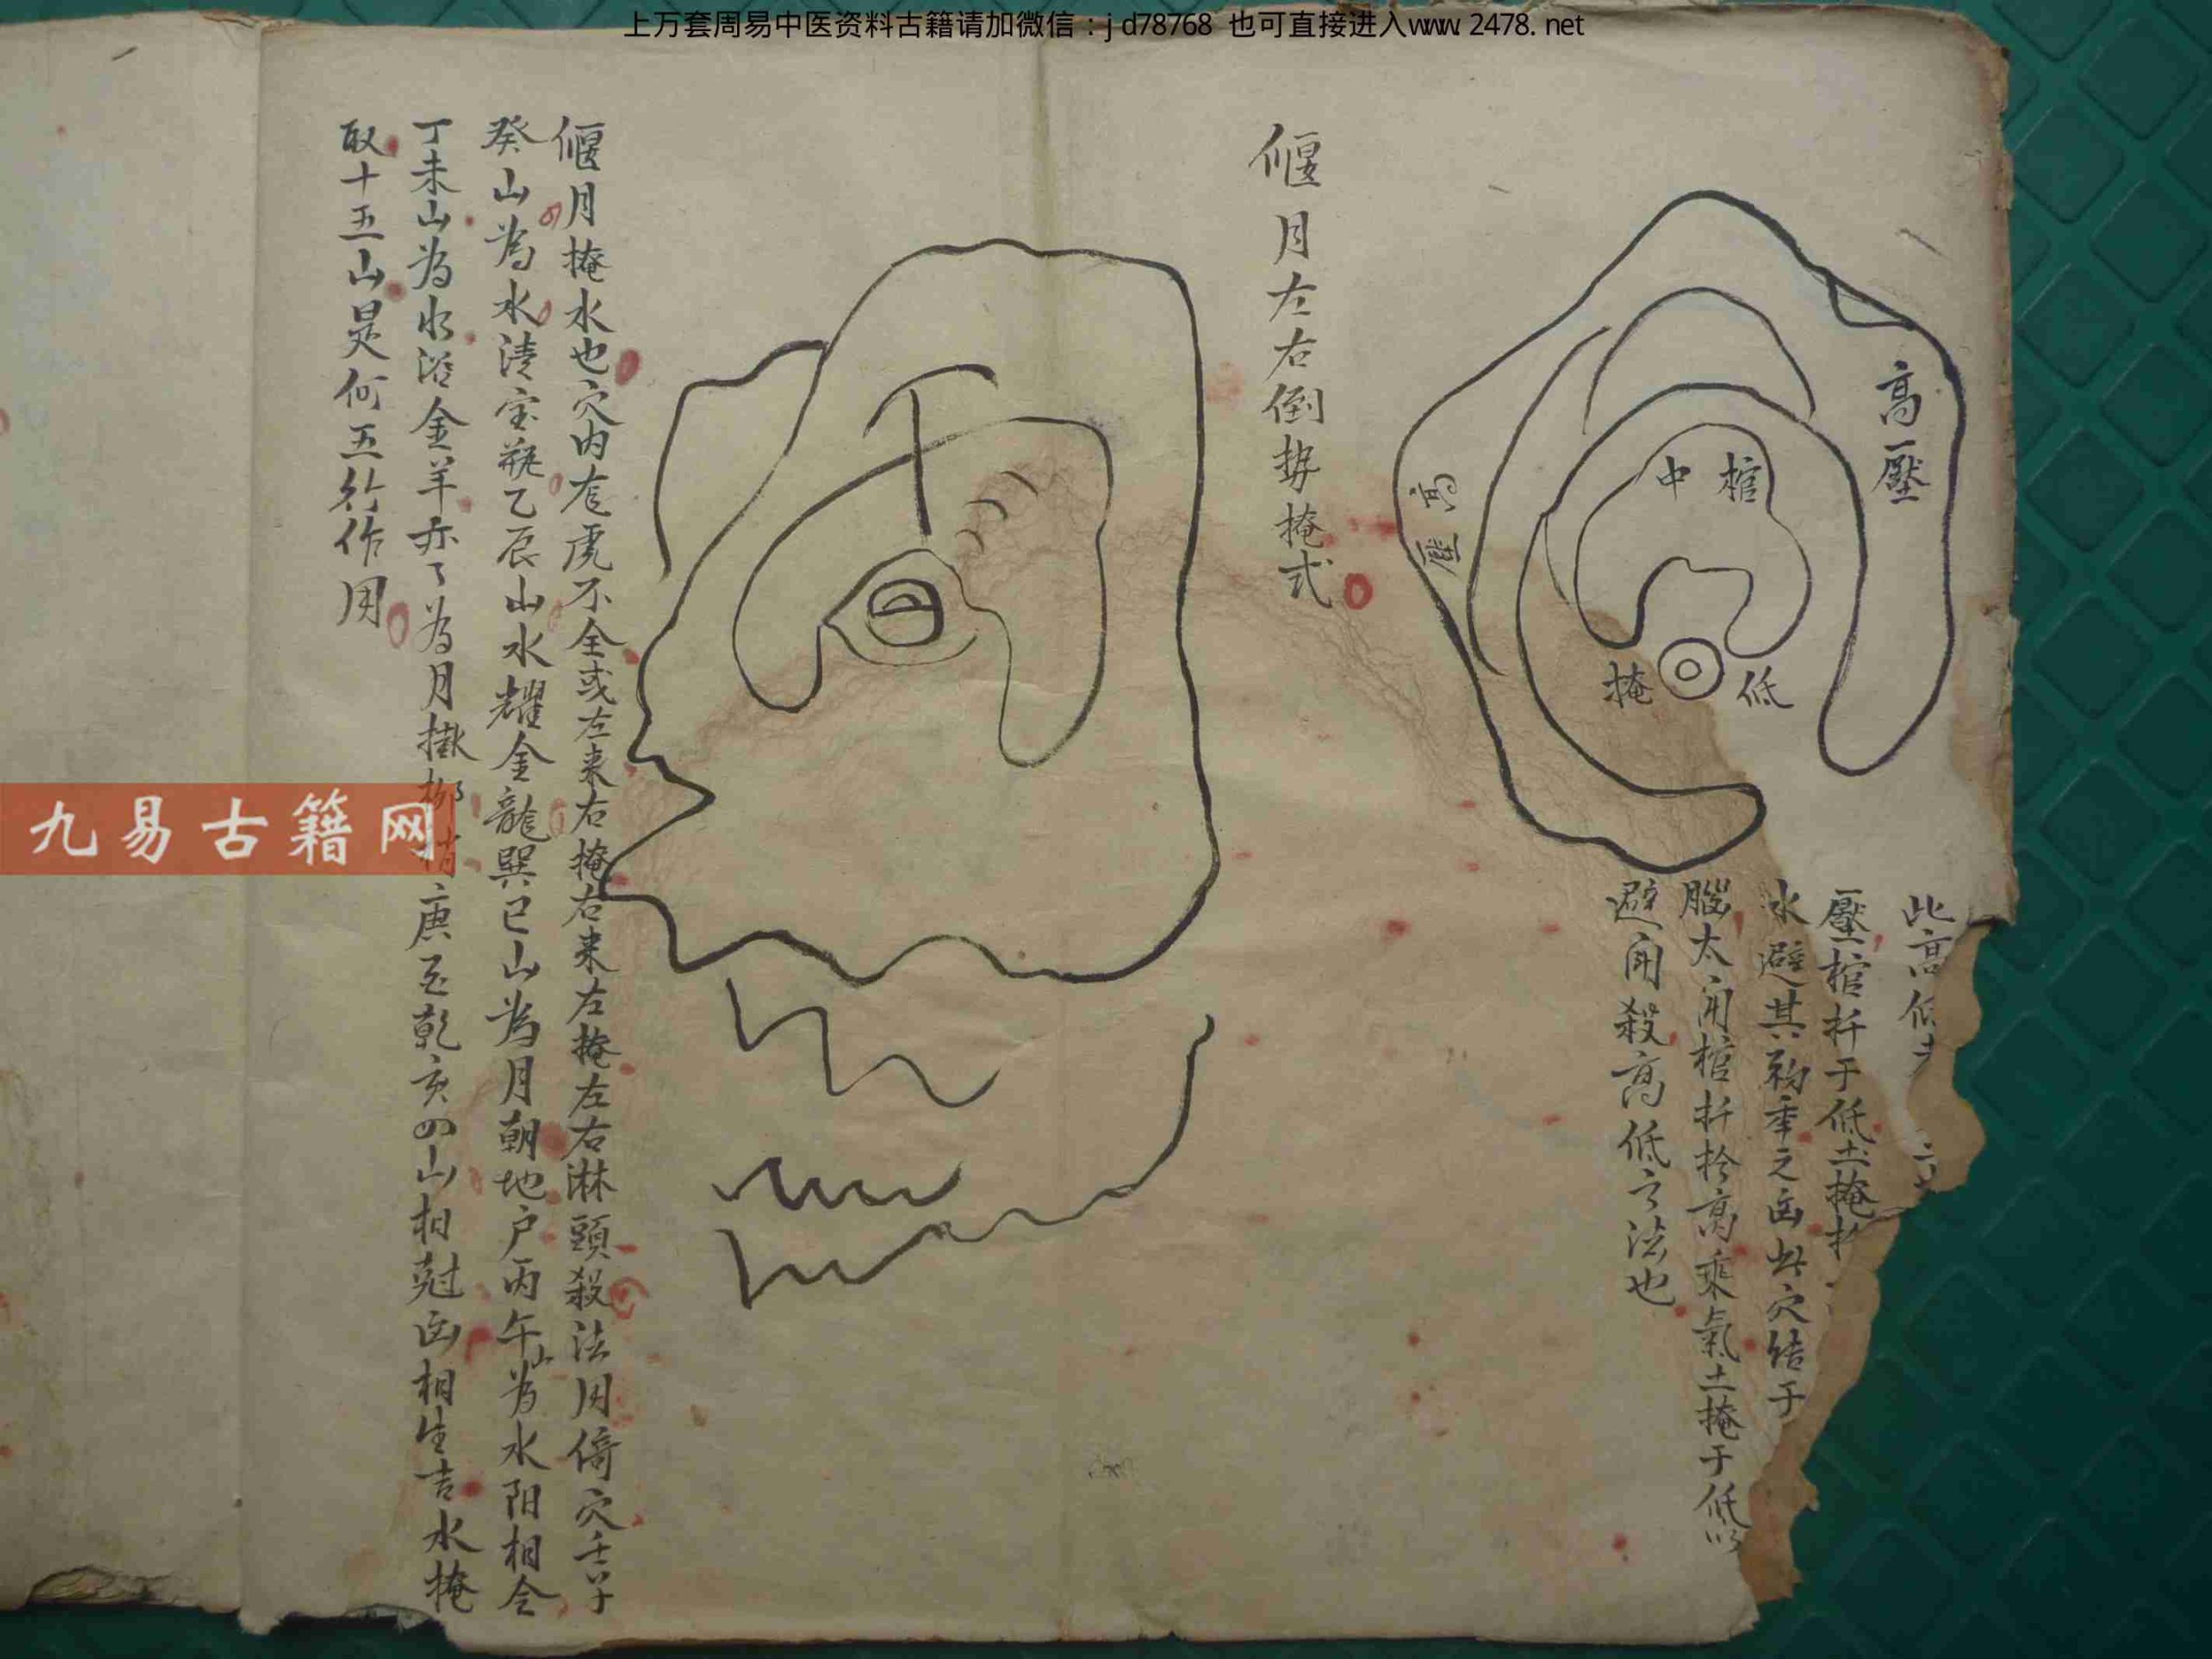 上万套周易中医资料古籍请加微信：jd78768 也可直接进入www.2478.net
高壓
棺中
高壓
低
掩
此高低
壓棺扦于低土掩扵
水避其 之凶此穴结于
腦太閗棺扦扵高乘氣土掩于低以
避閗殺高低之法也
偃月左右倒势掩式
偃月掩水也穴内龙虎不全或左来右掩右来左掩左右淋頭殺法用倚穴壬子
癸山為水清宝瓶乙辰山水耀金龍巽巳山為月朝地户丙午山為水阳相合
丁未山為水 金羊 為月掛柳梢庚 乾亥四山相尅凶相生吉水掩
取十五山是何五行作用
九易古籍网